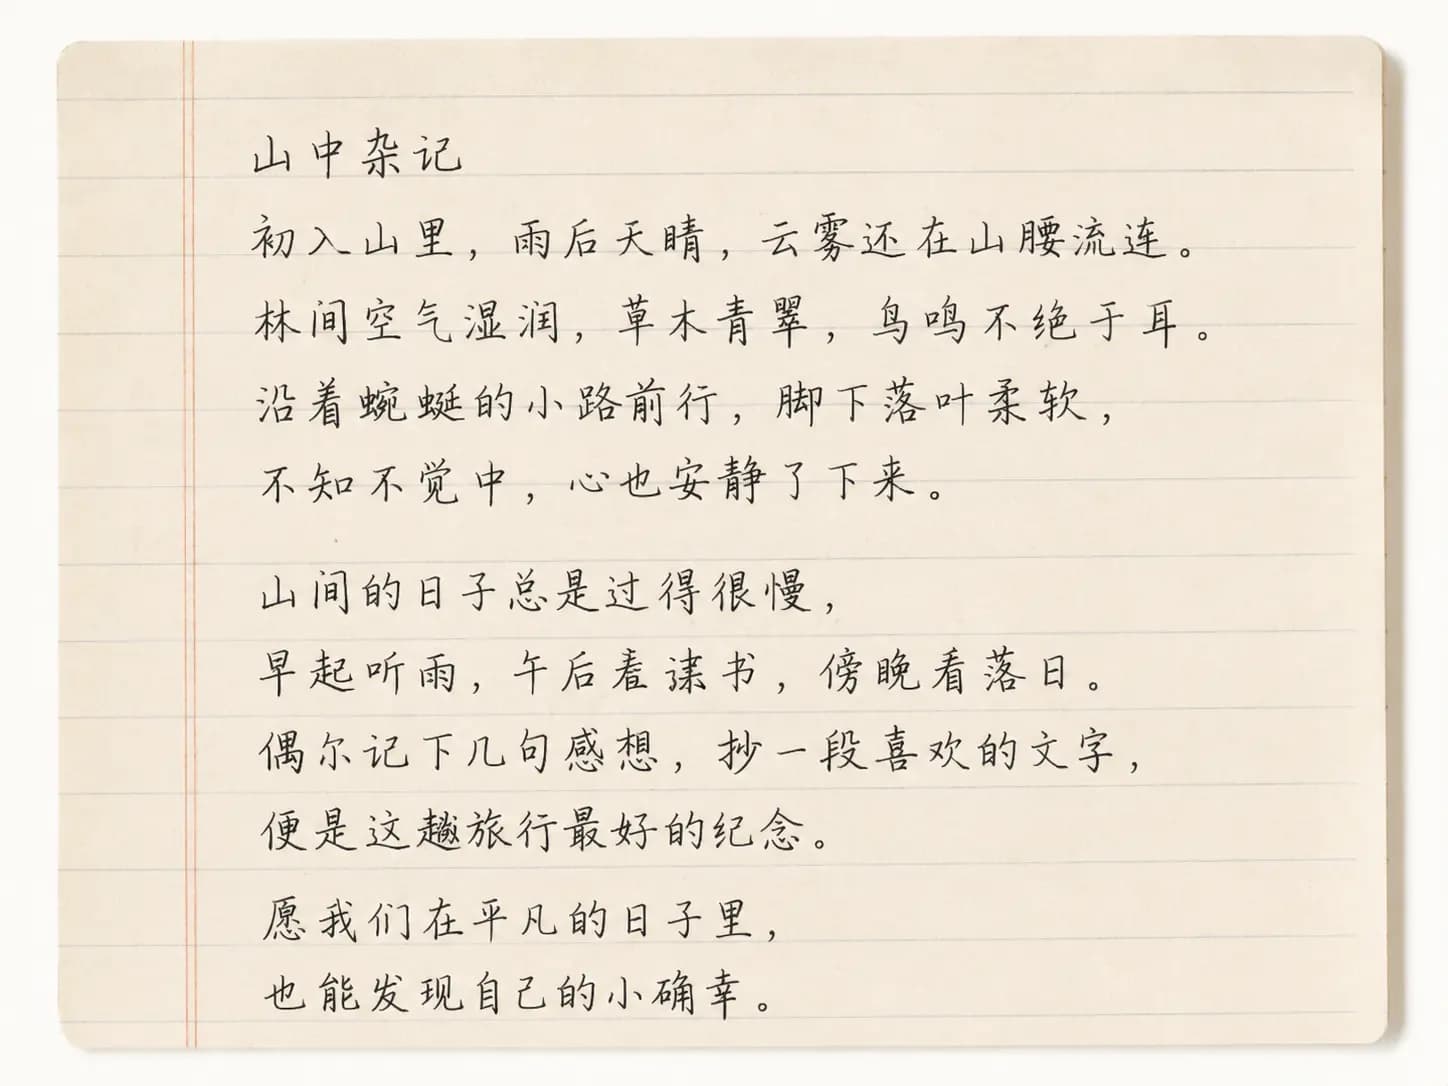 山中杂记
初入山里，雨后天晴，云雾还在山腰流连。
林间空气湿润，草木青翠，鸟鸣不绝于耳。
沿着蜿蜒的小路前行，脚下落叶柔软，
不知不觉中，心也安静了下来。
山间的日子总是过得很慢，
早起听雨，午后看书，傍晚看落日。
偶尔记下几句感想，抄一段喜欢的文字，
便是这趟旅行最好的纪念。
愿我们在平凡的日子里，
也能发现自己的小确幸。